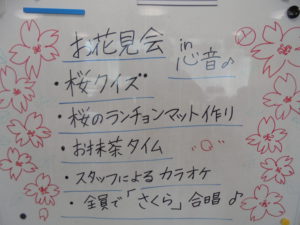 お花見会 in 心音♪
・桜クイズ
・桜のランチョンマット作り
・お抹茶タイム
・スタッフによる カラオケ
・全員で「さくら」合唱♪